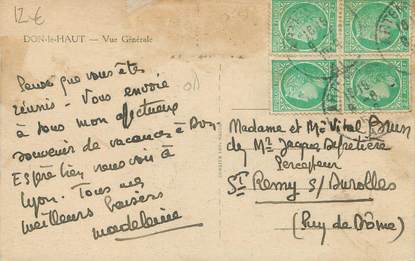 12 €
DON-le-HAUT — Vue Générale
que vous êtes
réunis - Vous envoie
à tous mon affectueux
souvenir de vacances à Don-
Espère bien vous voir à
Lyon. Tous mes
meilleurs baisers
Madeleine
Madame et Mr Vital
de Mr Jacques
Percepteur
St Remy s/ Durolles
(Puy de Dôme)